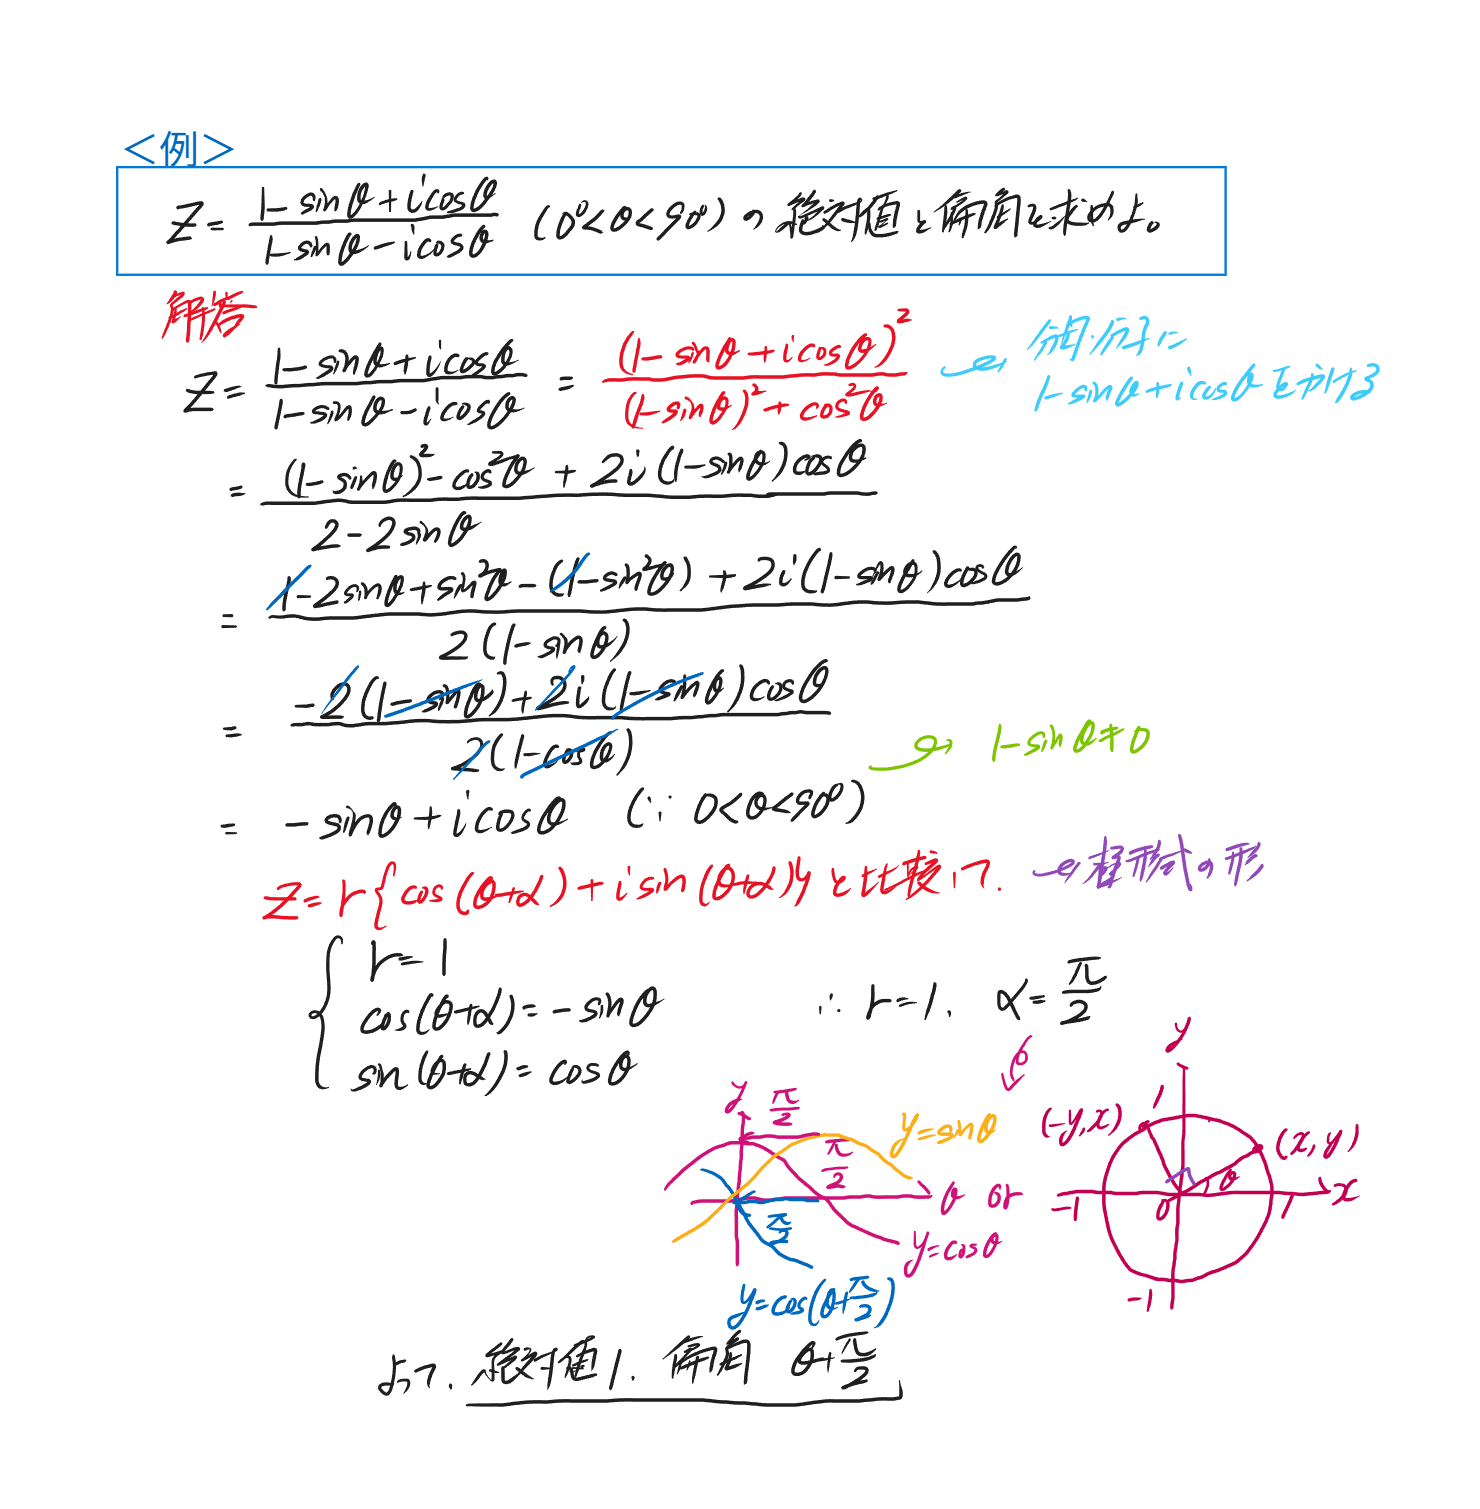 ＜例＞
Z = (1-sinθ+icosθ)/(1-sinθ-icosθ) (0°<θ<90°) の絶対値と偏角を求めよ。
解答
Z = (1-sinθ+icosθ)/(1-sinθ-icosθ) = (1-sinθ+icosθ)²/((1-sinθ)²+cos²θ)
分母・分子に
1-sinθ+icosθをかける
= ((1-sinθ)²-cos²θ+2i(1-sinθ)cosθ)/(2-2sinθ)
= (1-2sinθ+sin²θ-(1-sin²θ)+2i(1-sinθ)cosθ)/(2(1-sinθ))
= (-2(1-sinθ)+2i(1-sinθ)cosθ)/(2(1-cosθ))
1-sinθ≠0
= -sinθ+icosθ (∵ 0<θ<90°)
Z=r{cos(θ+α)+isin(θ+α)}と比較して、
極形式の形
r=1
cos(θ+α)=-sinθ
sin(θ+α)=cosθ
∴ r=1, α=π/2
y
π/2
y=sinθ
π/2
θ
π/2
y=cosθ
y=cos(θ+π/2)
or
y
(-y,x)
1
(x,y)
θ
-1
0
1
x
-1
よって、絶対値1、偏角 θ+π/2